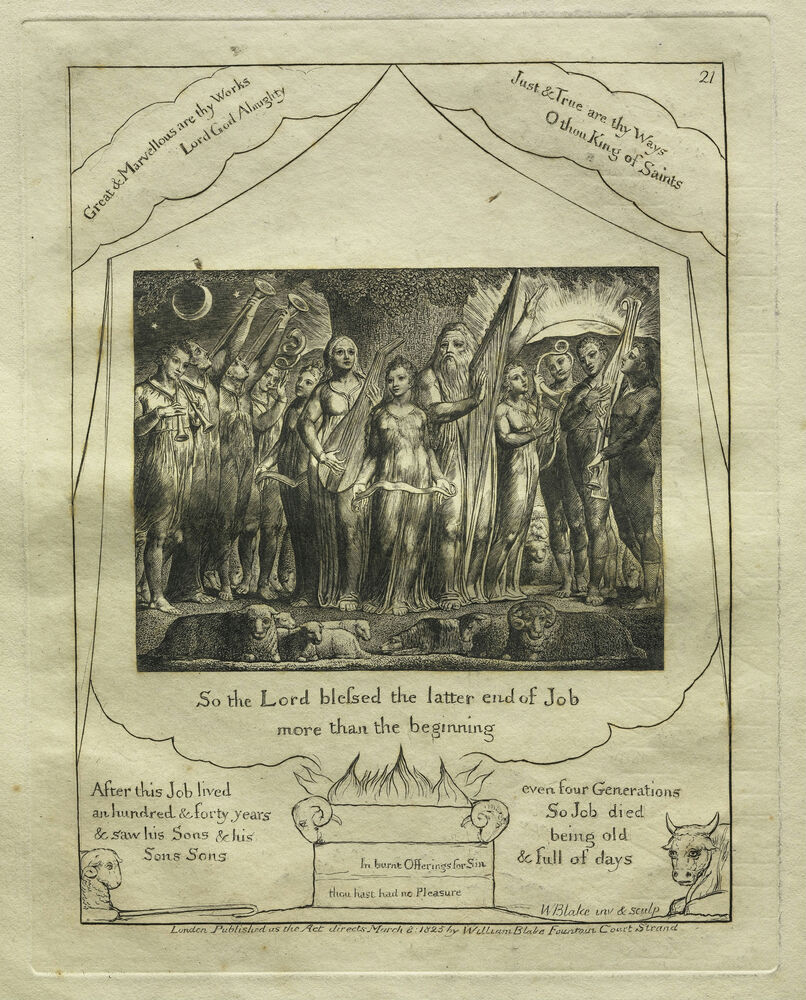 21
Great & Marvellous are thy Works
Lord God Almighty
Just & True are thy Ways
O thou King of Saints
So the Lord bleſsed the latter end of Job
more than the beginning
After this Job lived
an hundred & forty years
& saw his Sons & his
Sons Sons
even four Generations
So Job died
being old
& full of days
In burnt Offerings for Sin
thou hast had no Pleasure
WBlake inv & sculp
London Published as the Act directs March 8: 1825 by William Blake Fountain Court Strand